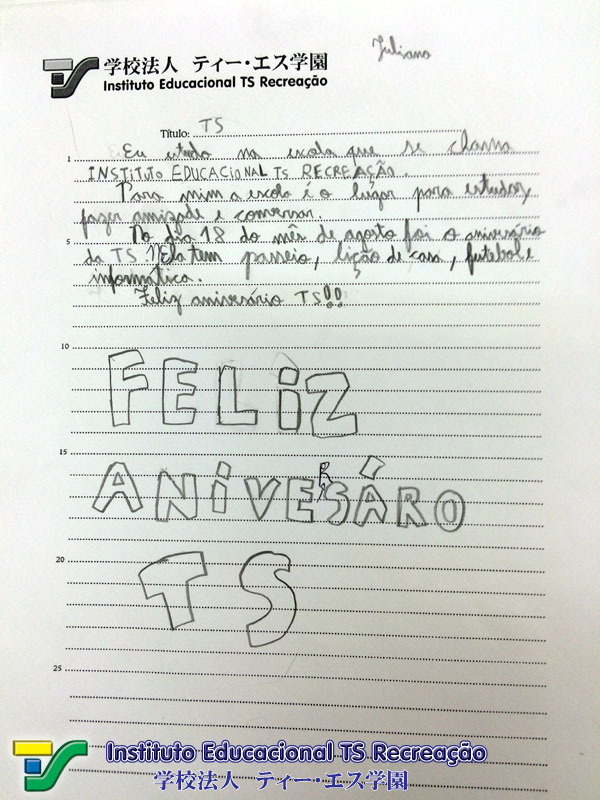 学校法人 ティー・エス学園
Instituto Educacional TS Recreação
Juliano
Título: TS
1
Eu estudo na escola que se chama
INSTITUTO EDUCACIONAL TS RECREAÇÃO.
Para mim a escola é o lugar para estudar,
fazer amizade e conversar.
5
No dia 18 do mês de agosto foi o aniversário
da TS. Ela tem passeio, lição de casa, futebol e
informática.
Feliz aniversário TS!!
10
FELiZ
15
ANiVERSÁRO
20
TS
25
Instituto Educacional TS Recreação
学校法人 ティー・エス学園